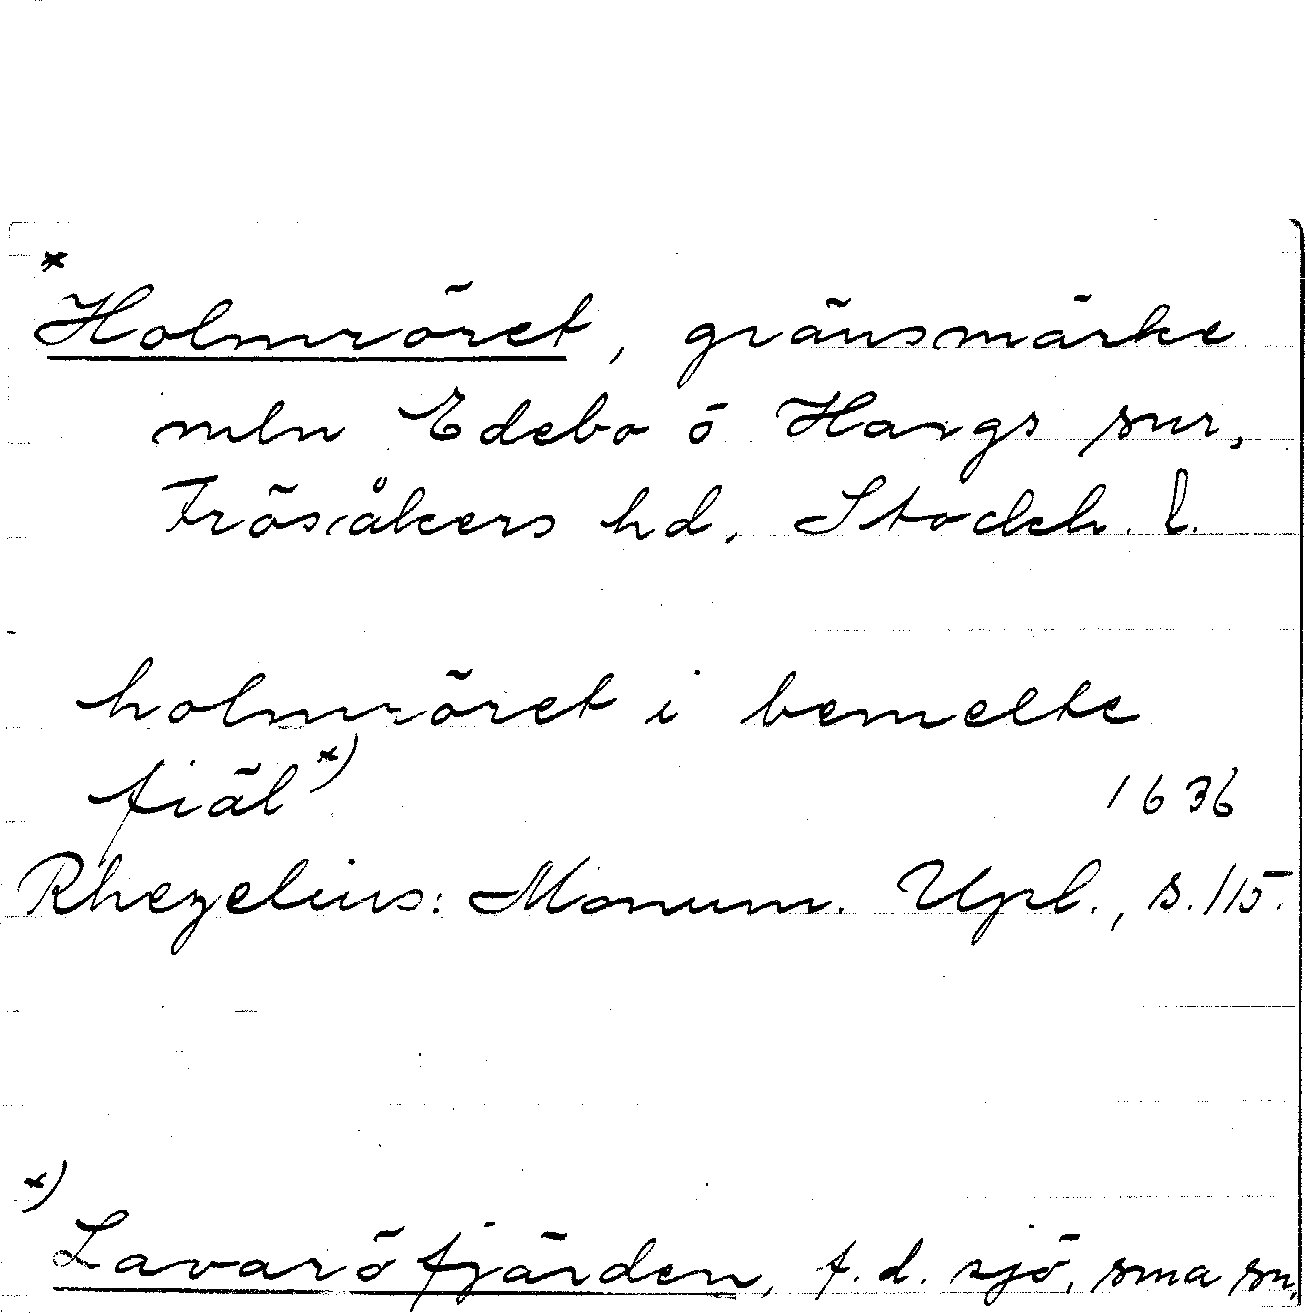 *
Holmröret, gränsmärke
mln Edebo o Hargs snr,
Frösåkers hd, Stockh. l.
holmröret i bemelte
fiäl *) 1636
Rhezelius: Monum. Upl., s. 115.
*)
Lavaröfjärden, f.d. sjö, sma sn,